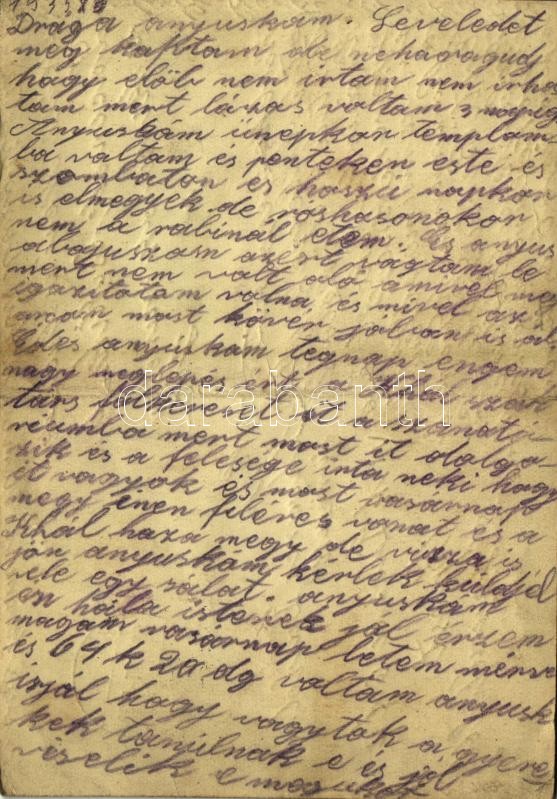 Drága anyuskám. Leveledet
meg kaptam de neharagudj
hogy előb nem irtam nem irha
tam mert lázas voltam 3 napig
Anyuskám ünepkor templom
ba voltam és penteken este és
szombaton es hoszú napkor
is elmegyek de roshasonakor
nem a rabinál etem. Es anyus
abajuszom azert vagtam le
mert nem volt oló amivel meg
igazitotam volna és mivel az
arcom most kövér jobban is al
Edes anyuskam tegnap engem
nagy meglepes ért a Khál szak
társ
riumba mert most it dolgo
zik és a felesege irta neki hogy
it vagyok és most vasárnap
megy enen fileres vonat és a
Khál haza megy de visza is
jön anyuskám kérlek küldjél
vele egy salat. anyuskám
en hála istenek jól érzem
magam vasarnap letem mérve
és 64 k 20 dg voltam anyusk
irjál hogy vagytok a gyere
kek tanulnak e es jól
viselik e magukat
darabanth